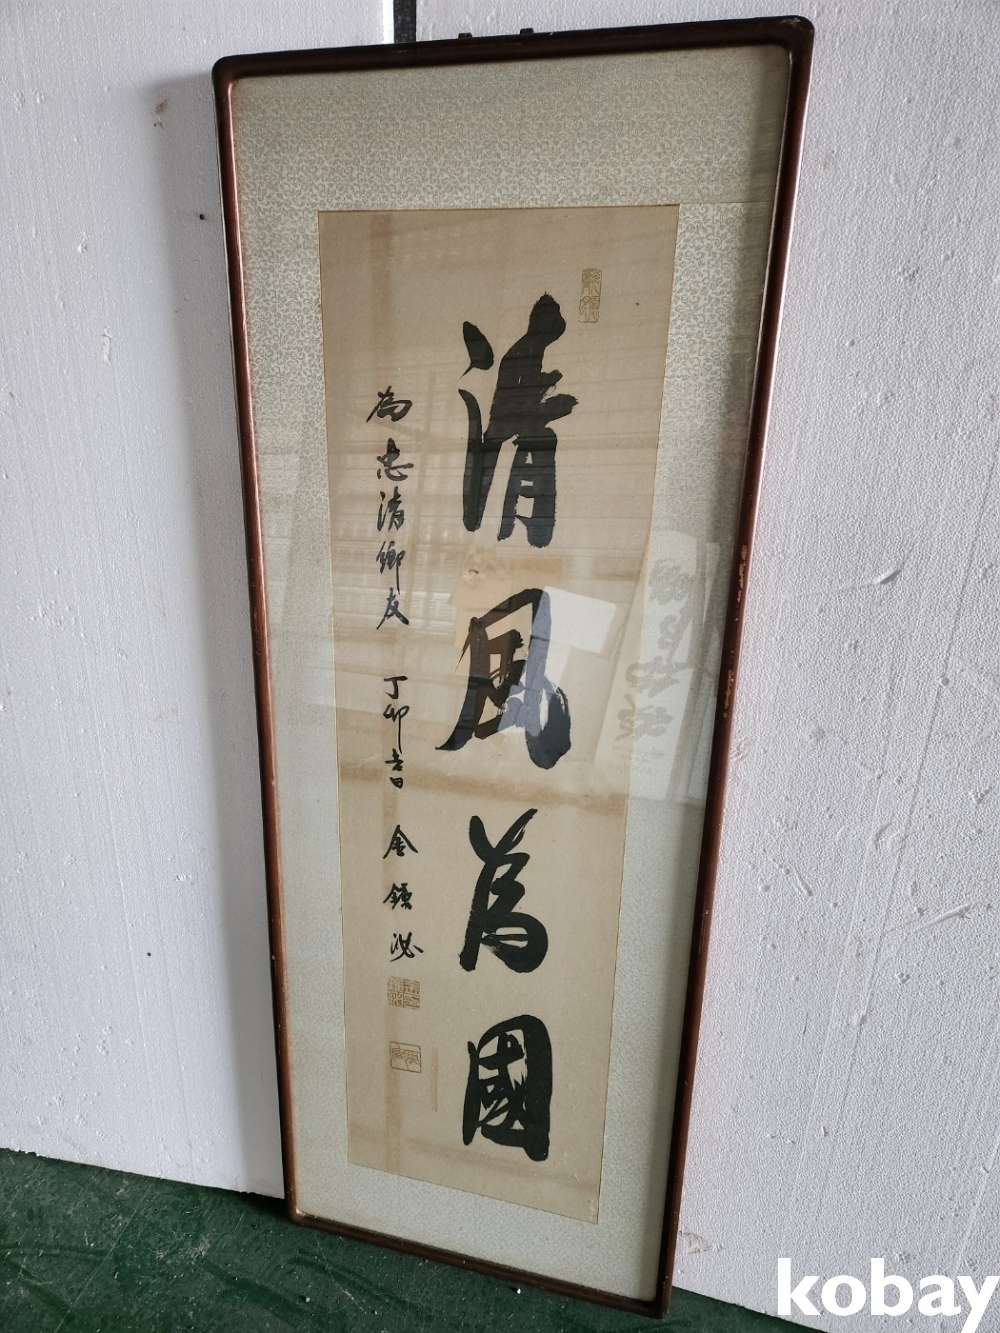 清風為國
為忠清鄉友 丁卯吉日 金鎮泌
kobay